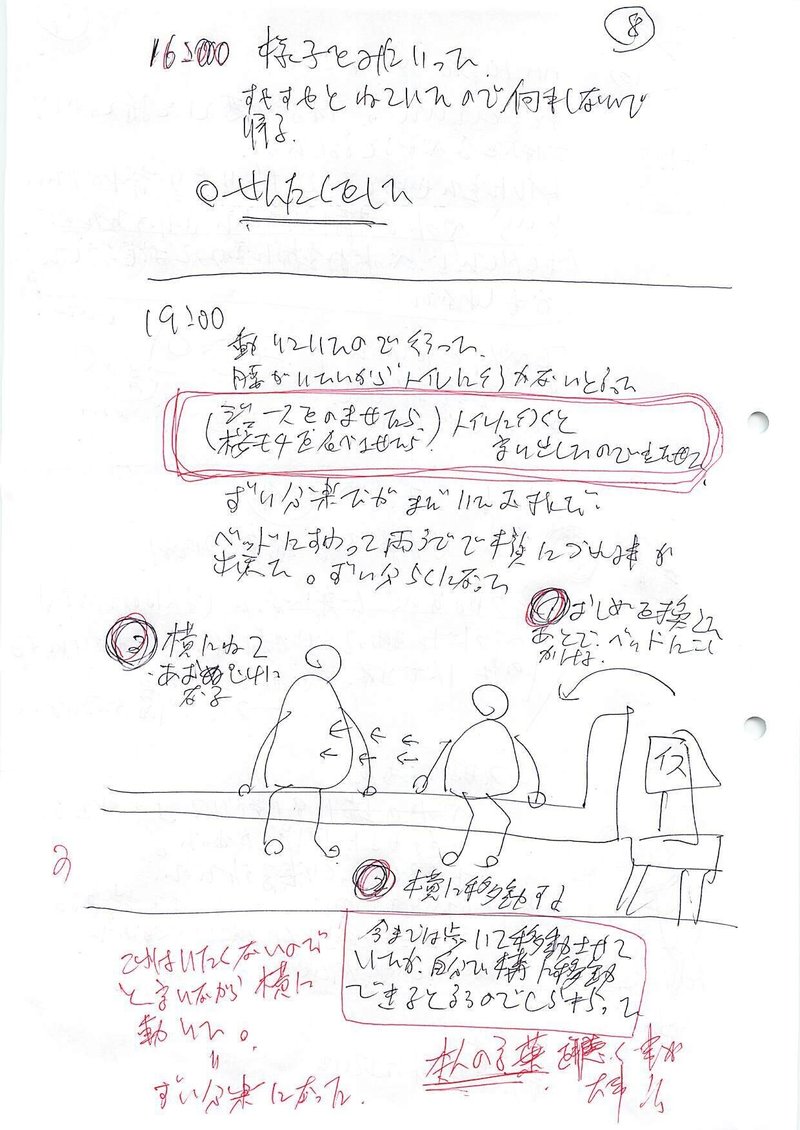 8
16:00 様子をみにいった
すやすやとねていたので何もしないで
帰る.
◎せんたくをした
19:00
動いていたので行った
腰がいたいからトイレに行かないと言って
(ジュースをのませたら トイレに行くと
桜モチを食べさせたら) 言い出したので
ずい分楽だがまだいたむ
ベッドにすわって両手で横に
出来た。ずい分らくになった
① おしめ交換した
あとで、ベッドにこし
かける.
③ 横にねて
あおむけに
なる
イス
② 横に移動する
今までは歩いて移動させて
いたが、自分で横に移動
できると言うので
これはいたくないので
と言いながら横に
動いた。
〃
ずい分楽になった.
本人の言葉を聴く事が
大事